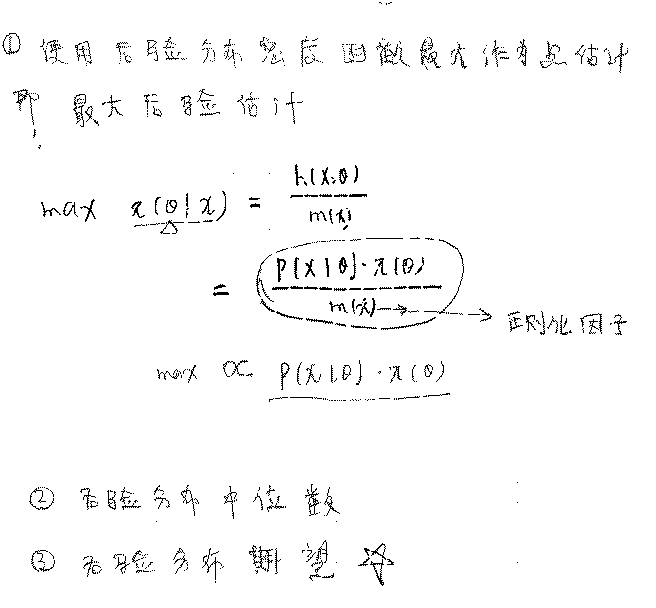 ① 使用后验分布密度函数最大作为点估计
即 最大后验估计
max π(θ|x) = h(x,θ) / m(x)
= p(x|θ)·π(θ) / m(x) → 正则化因子
max ∝ p(x|θ)·π(θ)
② 后验分布中位数
③ 后验分布期望 ☆